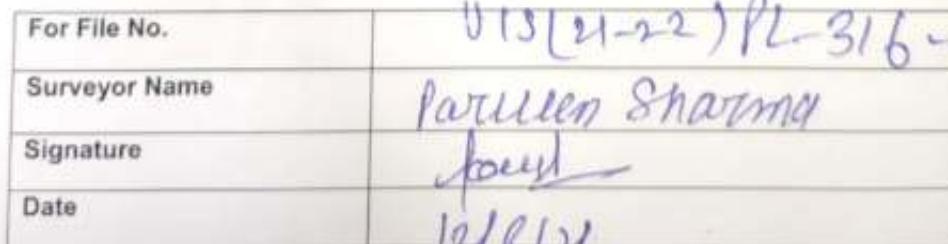 For File No. VIS(21-22)PL-316-
Surveyor Name Parveen Sharma
Signature
Date